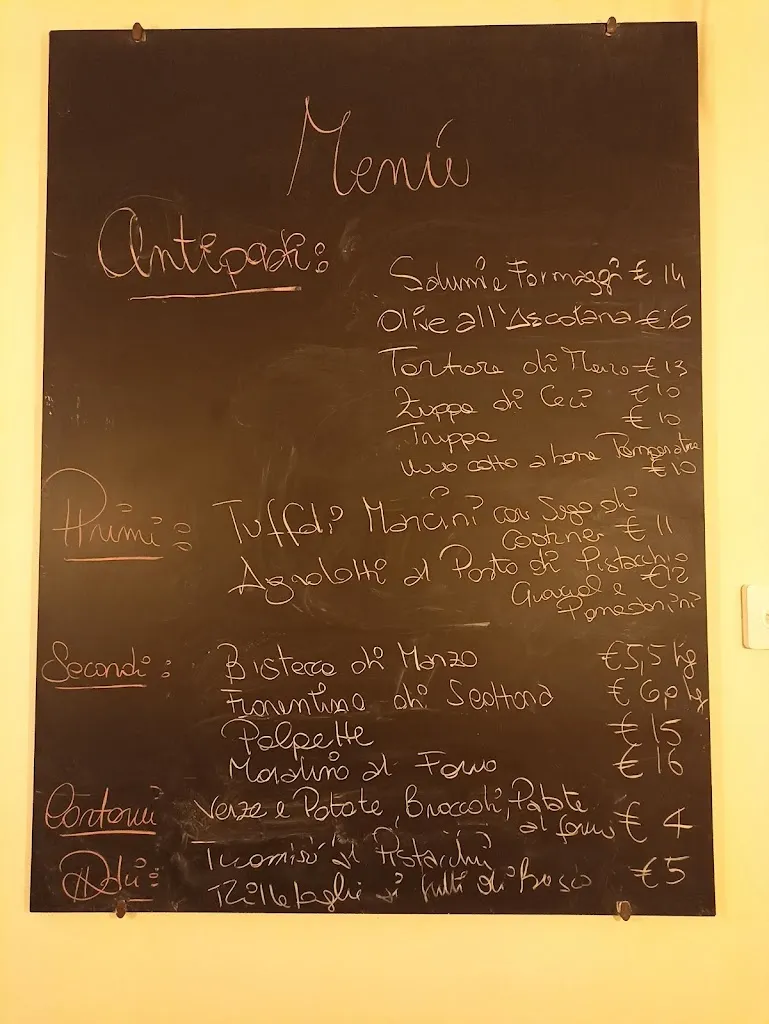 Menù
Antipasti:
Salumi e Formaggi € 14
Olive all'Ascolana € 6
Tartare di Manzo € 13
Zuppa di Ceci € 10
Trippa € 10
Uovo cotto a bassa Temperatura
€ 10
Primi:
Tuffoli Mancini con Sugo di
€ 11
Agnolotti al Pesto di Pistacchio
€ 12
e
Pomodorini
Secondi:
Bistecca di Manzo € 5,5 kg
Fiorentina di Scottona € 60 kg
Polpette € 15
Maialino al Forno € 16
Contorni
Verza e Patate, Broccoli, Patate
al forno € 4
Tiramisù al Pistacchio
Millefoglie ai frutti di Bosco € 5